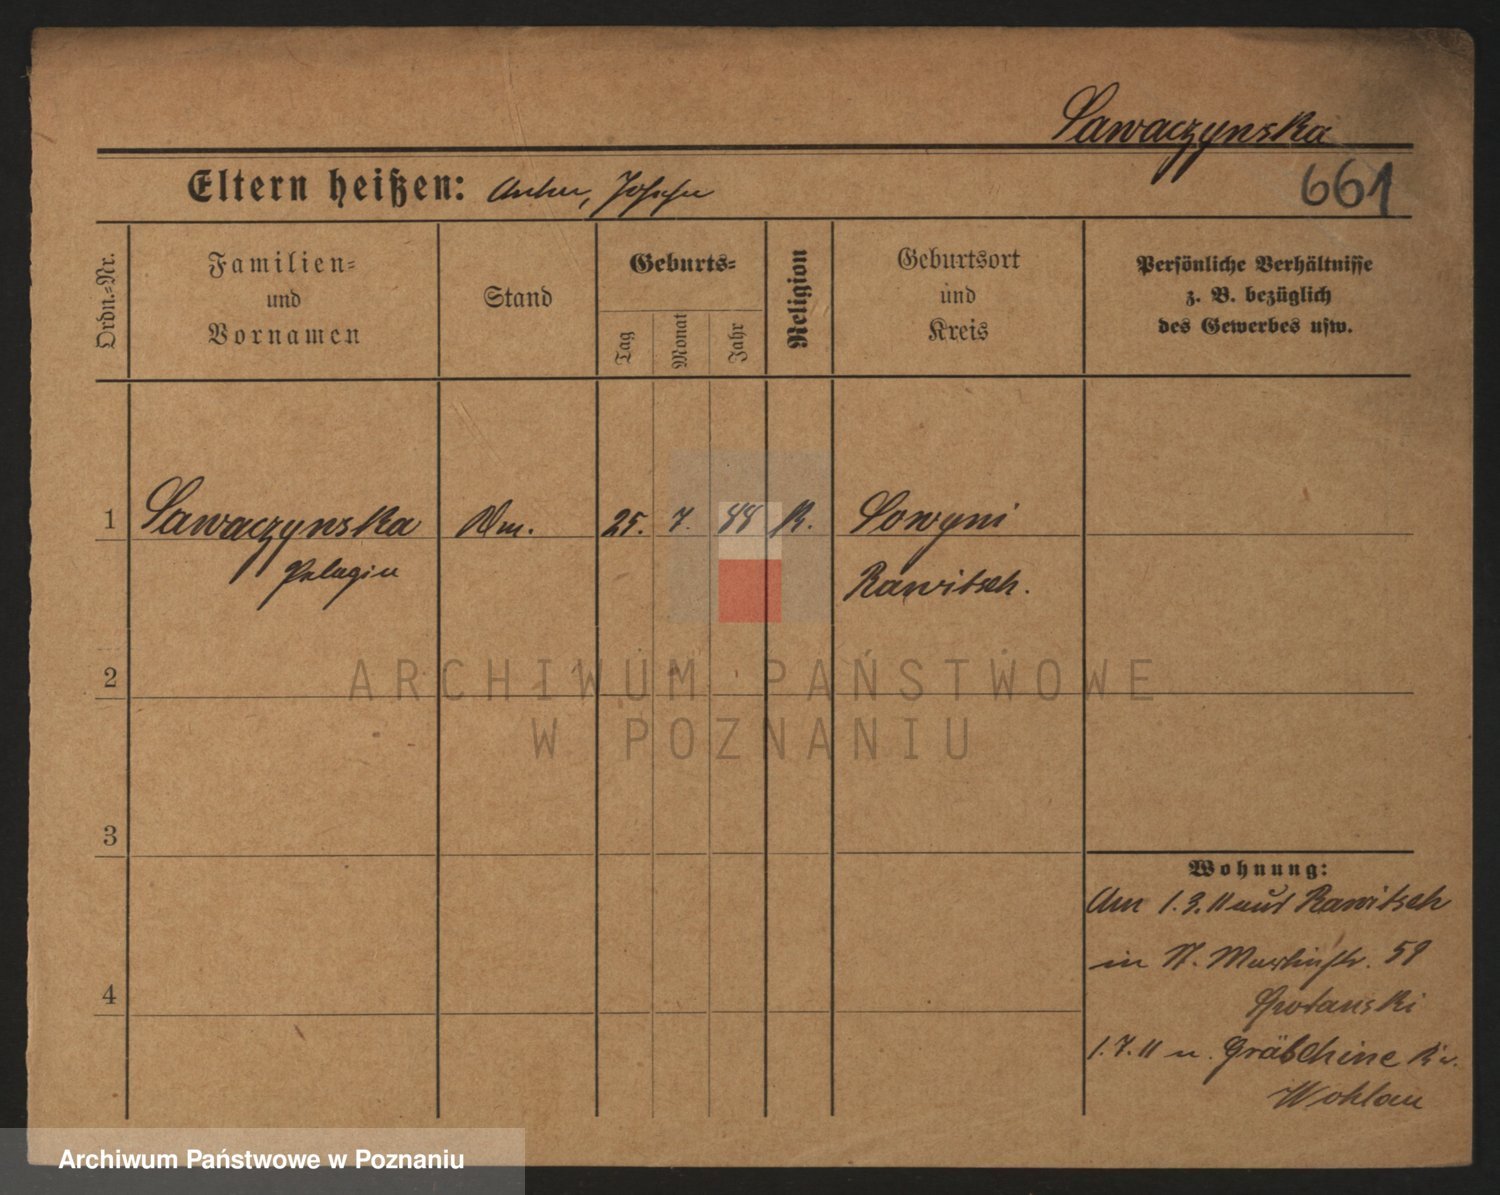 Sawaczynska
Eltern heißen: Anton, Josefa
661
Ordn.=Nr.
Familien=
und
Vornamen
Stand
Geburts=
Tag
Monat
Jahr
Religion
Geburtsort
und
Kreis
Persönliche Verhältnisse
z. B. bezüglich
des Gewerbes usw.
1 Sawaczynska 25. 7. 88 K. Sowyni
Pelagia
Rawitsch.
2
3
4
Wohnung:
Am 1.3.11 aus Rawitsch
in St. Martinstr. 59
1.7.11 n. Gräbchine Kr.
Wohlau
ARCHIWUM PAŃSTWOWE
W POZNANIU
Archiwum Państwowe w Poznaniu